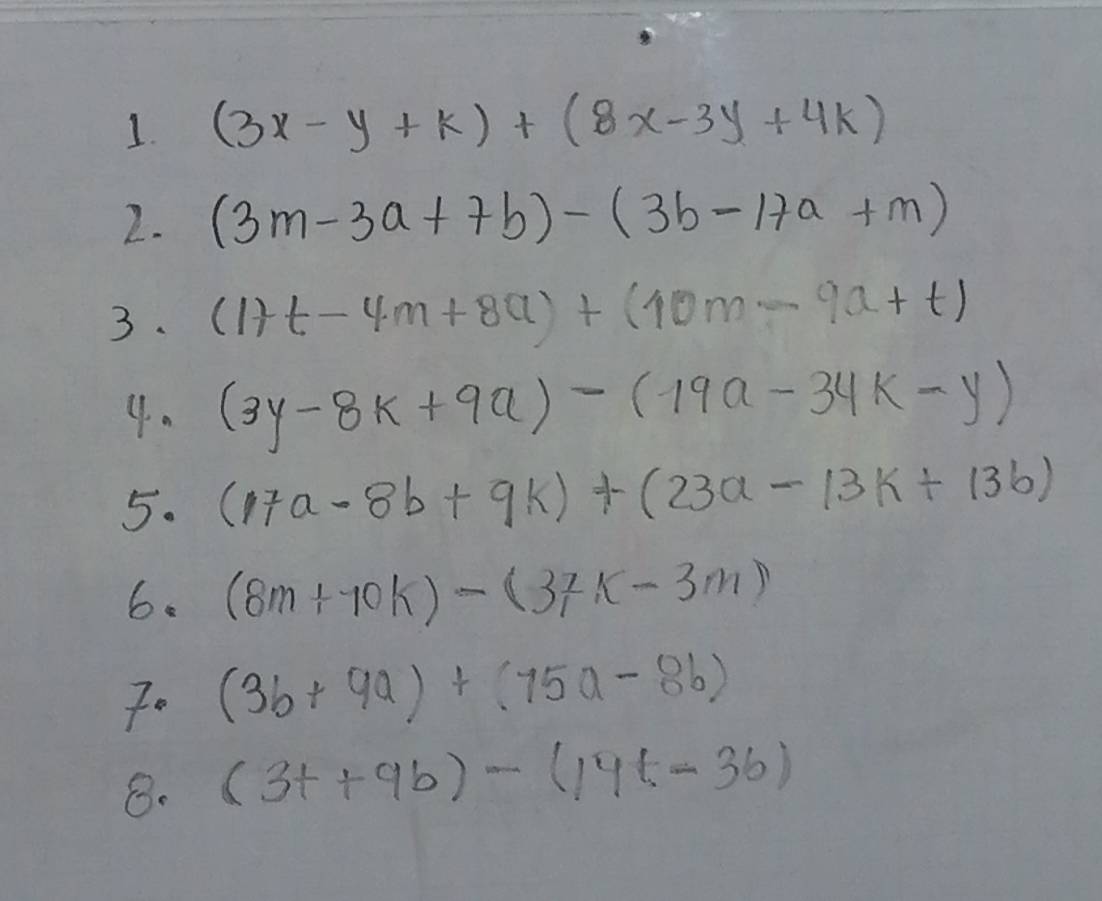 1. (3x - y + k) + (8x - 3y + 4k)
2. (3m - 3a + 7b) - (3b - 17a + m)
3. (17t - 4m + 8a) + (10m - 9a + t)
4. (3y - 8k + 9a) - (19a - 34k - y)
5. (17a - 8b + 9k) + (23a - 13k + 13b)
6. (8m + 10k) - (37k - 3m)
7. (3b + 9a) + (15a - 8b)
8. (3t + 9b) - (19t - 3b)